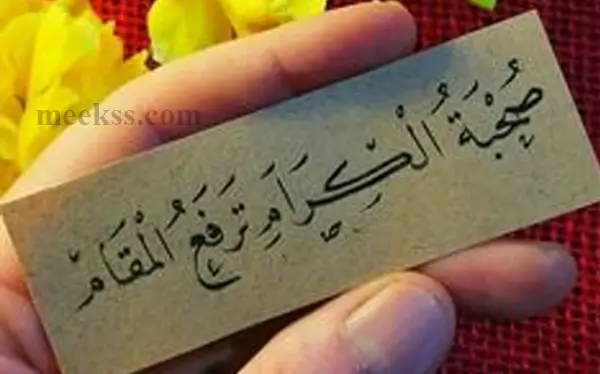 meekss.com
صُحْبَةُ الْكِرَامِ تَرْفَعُ الْمَقَامَ